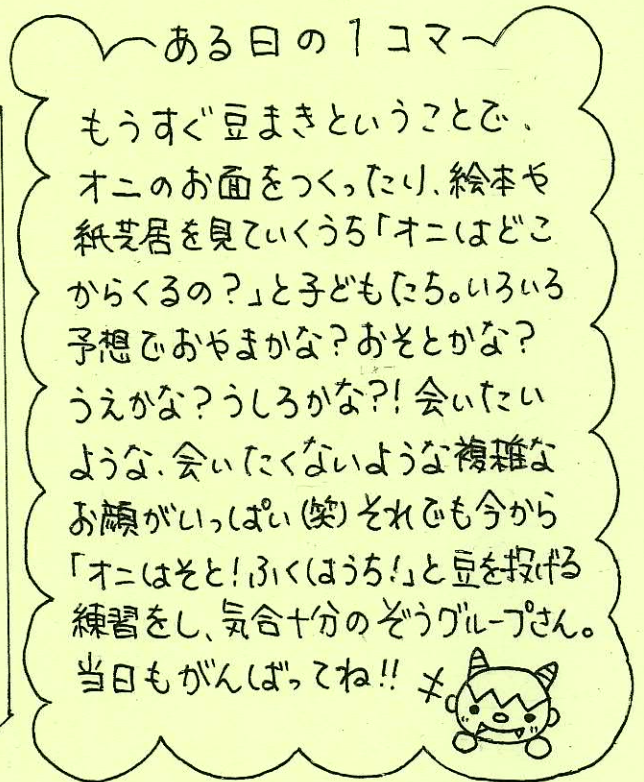 〜ある日の1コマ〜
もうすぐ豆まきということで、
オニのお面をつくったり、絵本や
紙芝居を見ていくうち「オニはどこ
からくるの？」と子どもたち。いろいろ
予想でおやまかな？おそとかな？
うえかな？うしろかな?! 会いたい
ような、会いたくないような複雑な
お顔がいっぱい(笑)それでも今から
「オニはそと！ふくはうち！」と豆を投げる
練習をし、気合十分のぞうグループさん。
当日もがんばってね!!